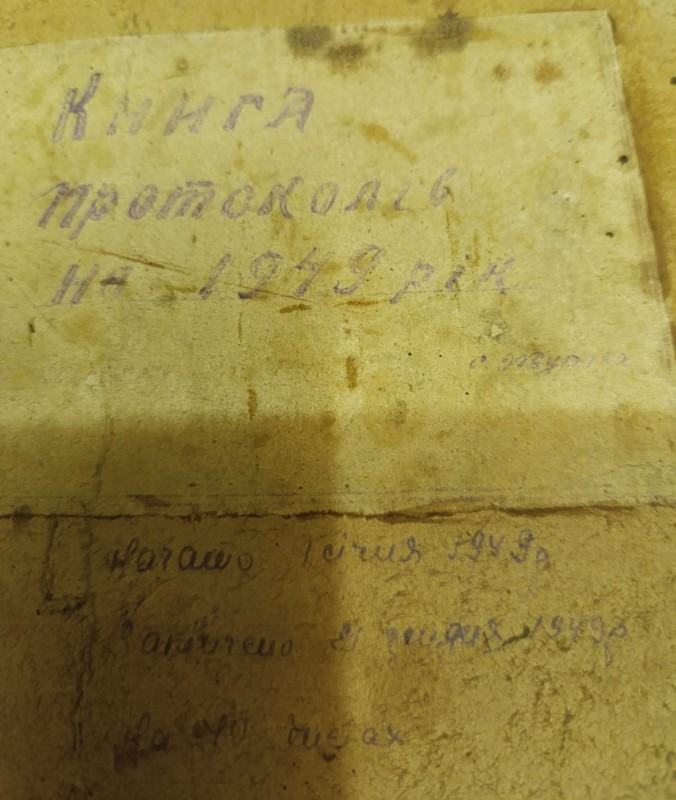 Книга
протоколів
на 1949 рік
с.
Начато 1 січня 1949р
Закінчено 31 грудня 1949р
На 40 листах